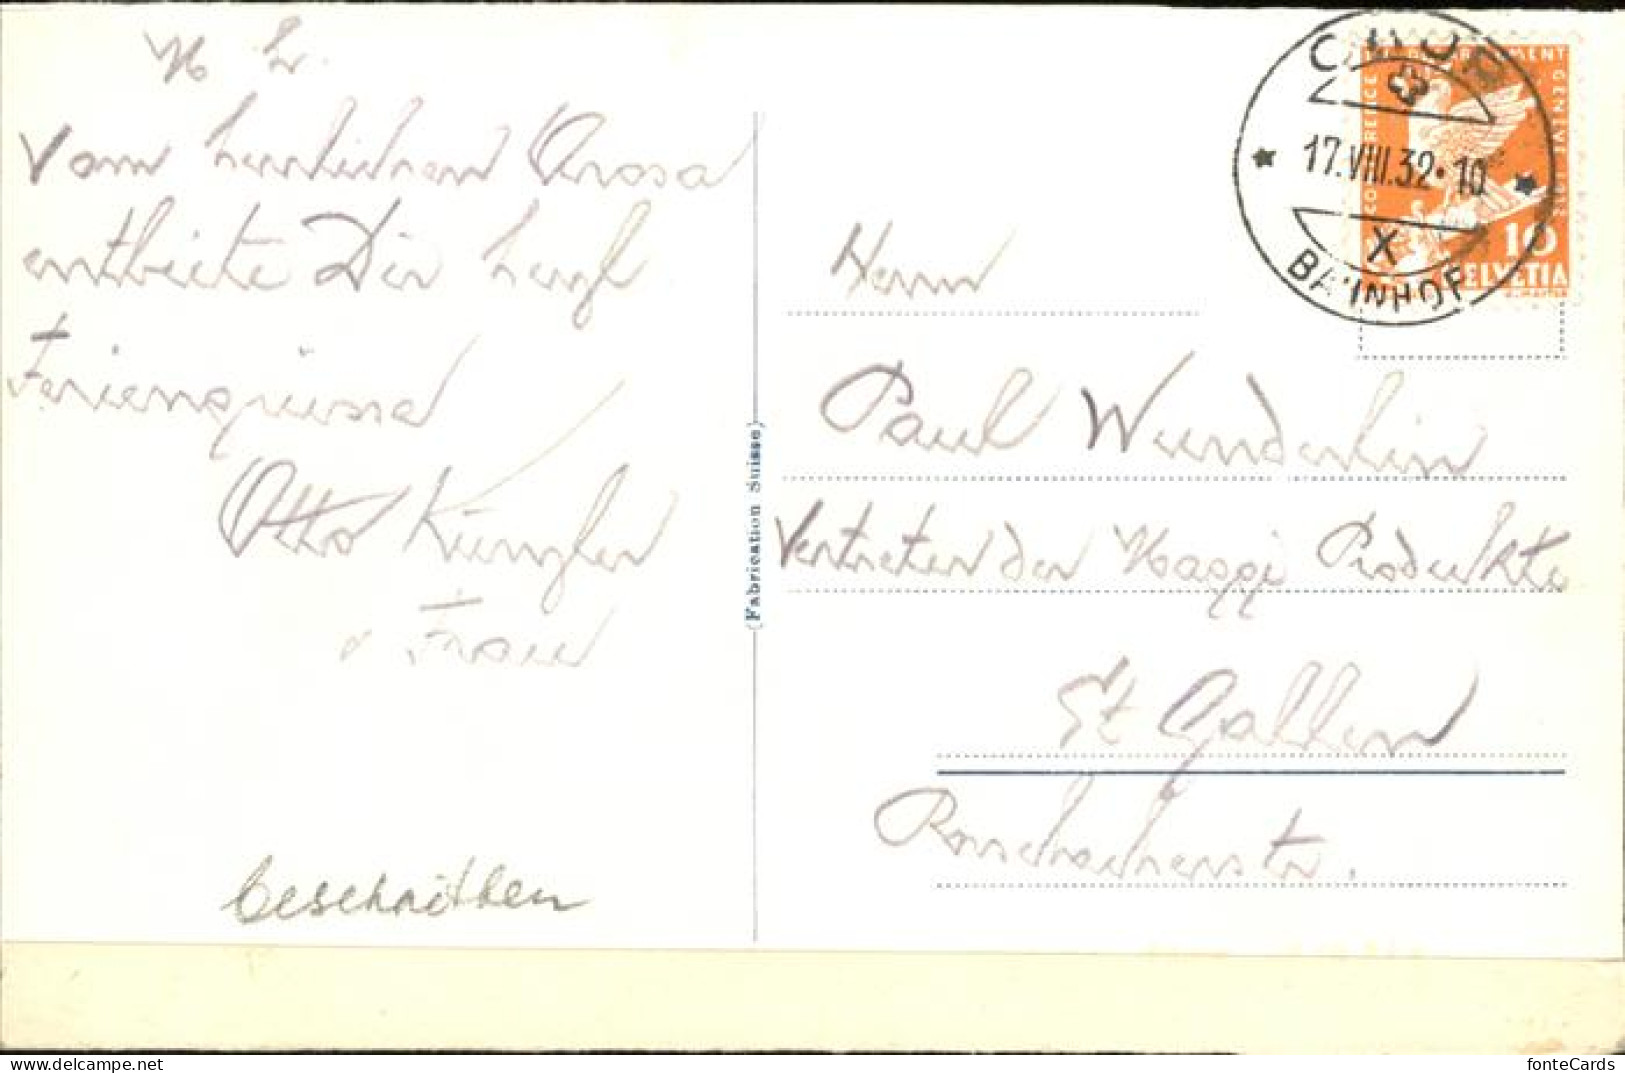 M. L.
Vom herrlichen Arosa
entbiete Dir herzl
Feriengrüsse
Otto Künzler
u Frau
beschrieben
(Fabrication Suisse)
CHUR
17.VIII.32·10
X
BAHNHOF
GENEVE 1932
10
HELVETIA
Herrn
Paul Wunderlin
Vertreter der Maggi Produkte
St Gallen
Rorschacherstr.
fonteCards